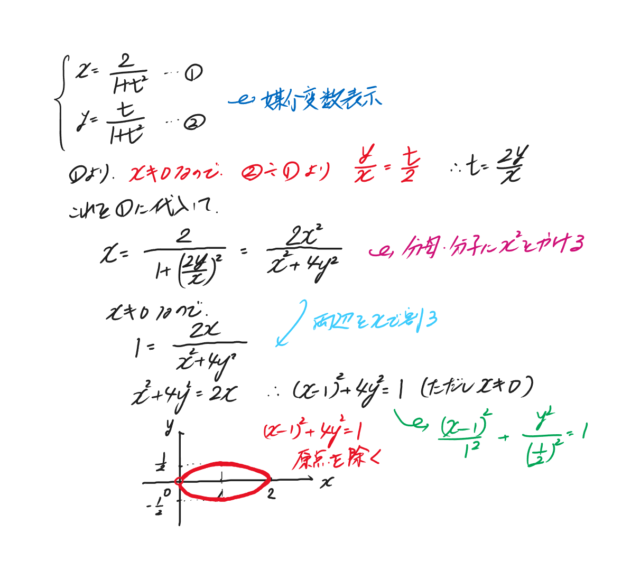 x = 2/(1+t²) … ①
y = t/(1+t²) … ②
媒介変数表示
①より, x≠0なので ②÷①より y/x = t/2 ∴ t = 2y/x
これを①に代入して,
x = 2/(1+(2y/x)²) = 2x²/(x²+4y²) 分母・分子にx²をかける
x≠0なので,
1 = 2x/(x²+4y²) 両辺をxで割る
x²+4y² = 2x ∴ (x-1)²+4y² = 1 (ただし x≠0)
(x-1)²/1² + y²/(1/2)² = 1
(x-1)²+4y² = 1
原点を除く
y
1/2
0 1 2 x
-1/2